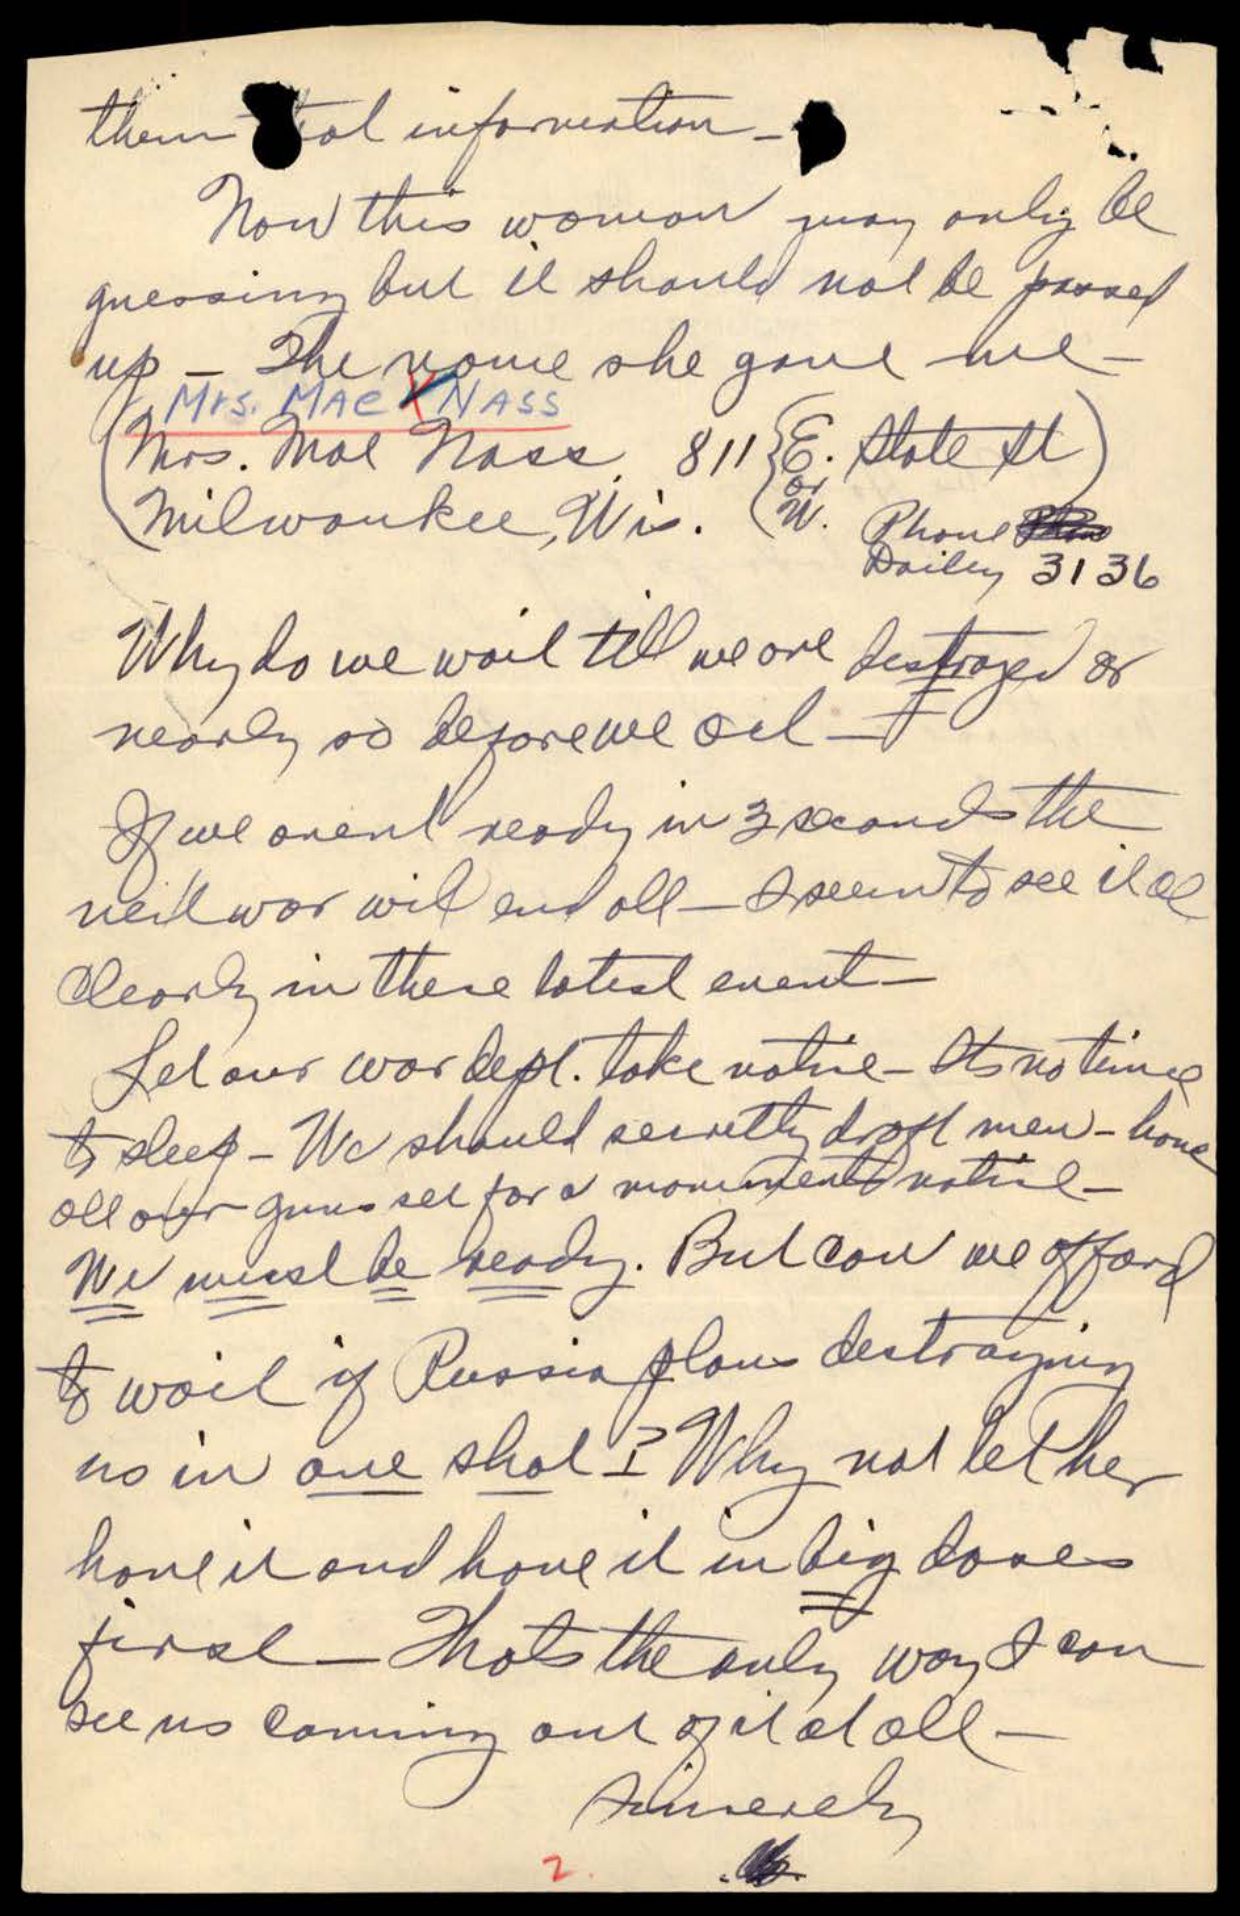 them that information –
Now this woman may only be
guessing but it should not be passed
up – The name she gave me –
Mrs. MAE NASS
(Mrs. Mae Nass, 811 {E. State St)
or
(Milwaukee, Wis. (W.
Phone
Dailey 3136
Why do we wait till we are destroyed or
nearly so before we act –
If we arent ready in 3 seconds the
next war will end all – I seem to see it all
clearly in these latest event –
Let our war dept. take notice – Its no time
to sleep – We should secretly draft men – have
all our guns set for a moments notice –
We must be ready. But can we afford
to wait if Russia plans destroying
us in one shot? Why not let her
have it and have it in big doses
first – Thats the only way I can
see us coming out of it at all –
Sincerely
2.